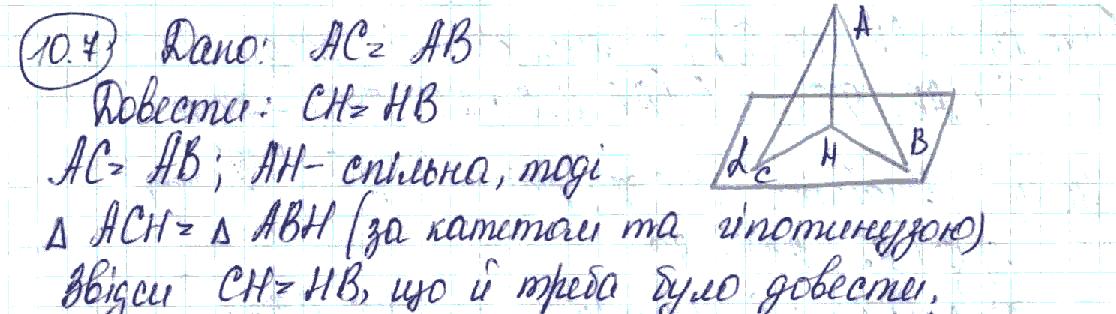 10.7 Дано: AC = AB
Довести: CH = HB
AC = AB; AH – спільна, тоді
Δ ACH = Δ ABH (за катетом та гіпотинузою)
Звідси CH = HB, що й треба було довести.
A
B
H
α C